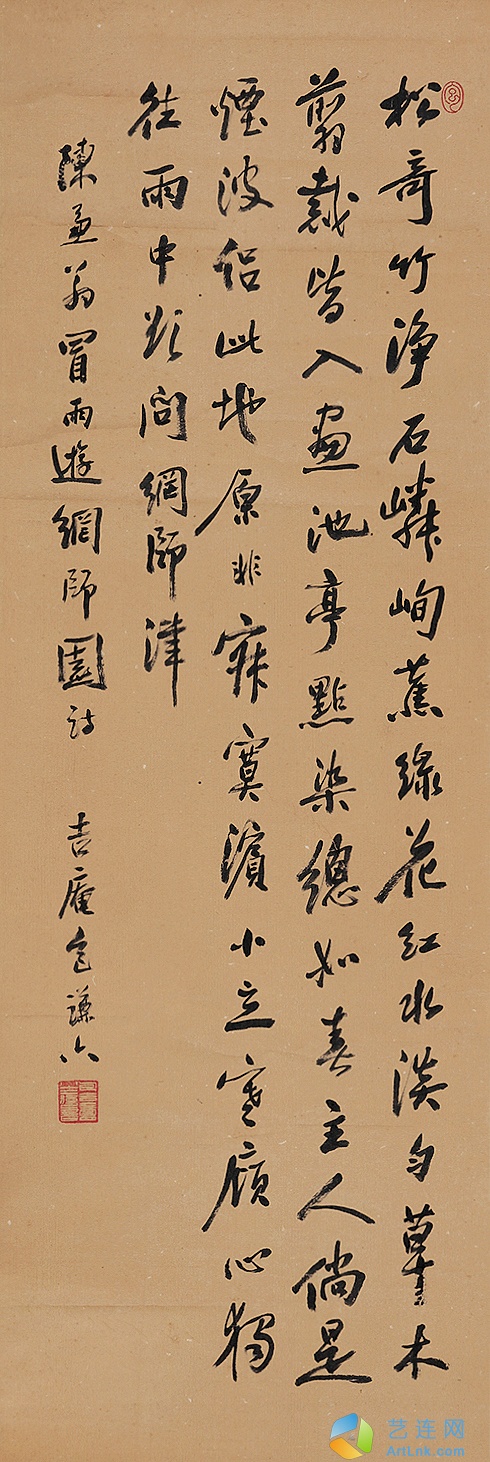 松奇竹淨石嶙峋蕉綠花紅水淡勻草木
翦裁皆入畫池亭點染總如春主人倘是
煙波侶此地原非寂寞濱小立空廊心獨
往雨中頻問網師津
陳兼翁冒雨遊網師園詩
吉庵包謙六
艺连网
ArtLnk.com